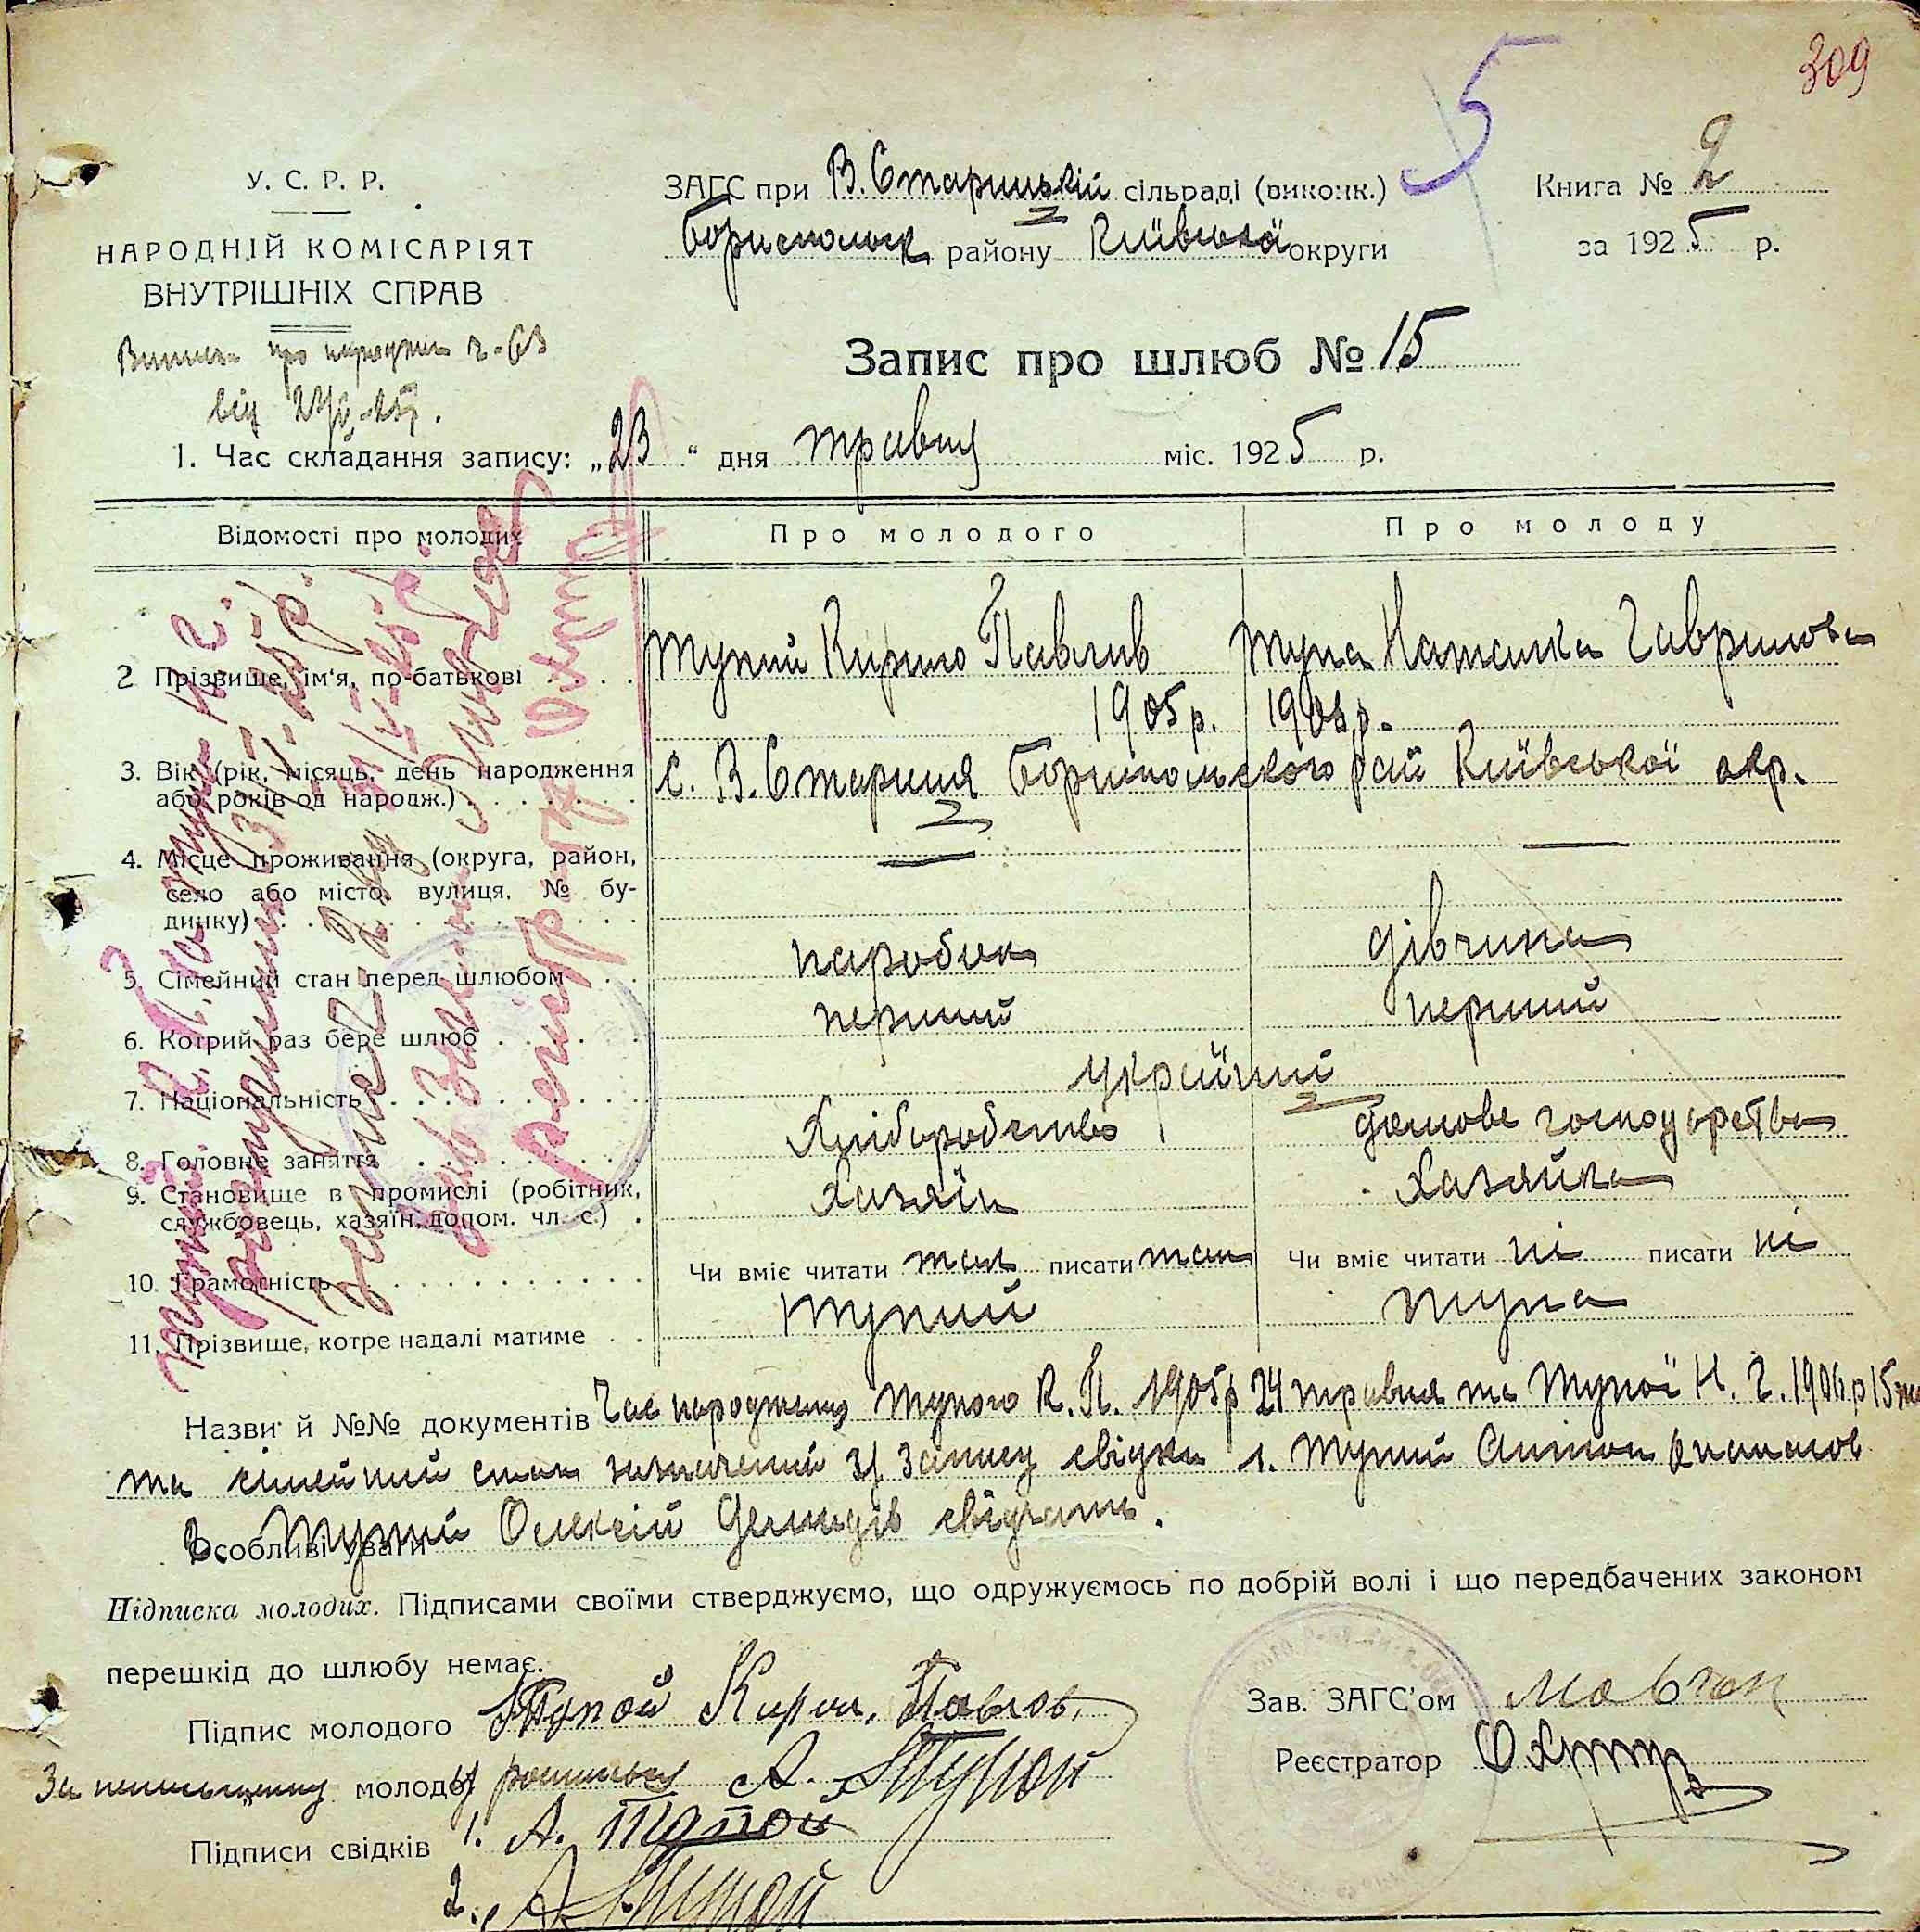 309
5
У. С. Р. Р.
НАРОДНІЙ КОМІСАРІЯТ
ВНУТРІШНІХ СПРАВ
ЗАГС при В. Старицькій сільраді (виконк.)
Бориспольск району Київської округи
Книга № 2
за 1925 р.
про ч. 63
від
Запис про шлюб № 15
1. Час складання запису: „23“ дня травня міс. 1925 р.
Відомості про молодих
Про молодого
Про молоду
2 Прізвище, ім'я, по-батькові . .
Тупий Кирило Павлів
Тупа Наталка Гаврилова
1905 р.
1906 р.
3. Вік (рік, місяць, день народження
або років од народж.) . . . . . . .
с. В. Стариця Бориспольского рай Київської окр.
4. Місце проживання (округа, район,
село або місто, вулиця, № бу-
динку) . . . . . . . . . . . .
5. Сімейний стан перед шлюбом . .
паробок
дівчина
6. Котрий раз бере шлюб . . . . .
перший
перший
7. Національність . . . . . . . . .
україн
8. Головне заняття . . . . . . . .
Хліборобство
домове господарство
9. Становище в промислі (робітник,
службовець, хазяїн, допом. чл. с.) .
Хазяїн
Хазяйка
10. Грамотність . . . . . . . . . .
Чи вміє читати так писати так
Чи вміє читати ні писати ні
11. Прізвище, котре надалі матиме . .
Тупий
Тупа
Назви й №№ документів Час народження Тупого К. П. 1905 р 24 травня та Тупої Н. Г. 1906 р 15
та сімейний стан зазначений зі свідки 1. Тупий Антон Опанасов
2. Тупий Олексій Демидів свідчать.
Особливі уваги
Підписка молодих. Підписами своїми стверджуємо, що одружуємось по добрій волі і що передбачених законом
перешкід до шлюбу немає.
Підпис молодого Тупой Кирил. Павлов.
За неписьменну молоду А. Тупой
Підписи свідків 1. А. Тупой
2. А. Тупой
Зав. ЗАГС'ом Мовчан
Реєстратор